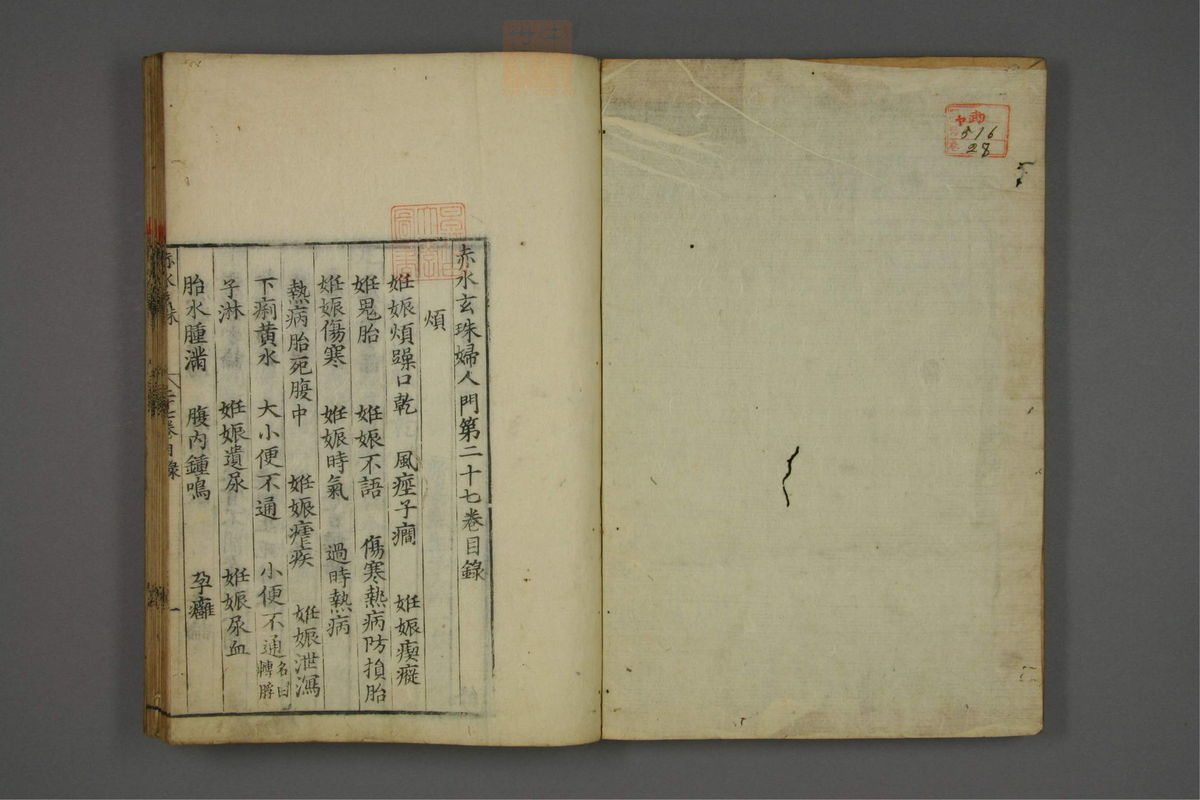 赤水玄珠婦人門第二十七卷目錄
煩
姙娠煩躁口乾 風痓子癎 姙娠瘈瘲
姙鬼胎 姙娠不語 傷寒熱病防損胎
姙娠傷寒 姙娠時氣 過時熱病
熱病胎死腹中 姙娠瘧疾 姙娠泄瀉
下痢黃水 大小便不通 小便不通名曰轉脬
子淋 姙娠遺尿 姙娠尿血
胎水腫滿 腹內鍾鳴 孕癰
二十七卷目錄 一
516
28